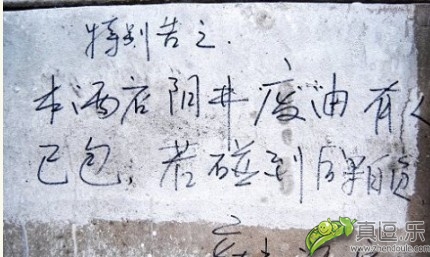 特别告之.
本两店阴井废油有人
已包,若碰到后果自负
真逗.乐
www.zhendoule.com